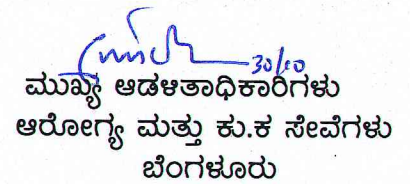 30/10
ಮುಖ್ಯ ಆಡಳಿತಾಧಿಕಾರಿಗಳು
ಆರೋಗ್ಯ ಮತ್ತು ಕು.ಕ ಸೇವೆಗಳು
ಬೆಂಗಳೂರು